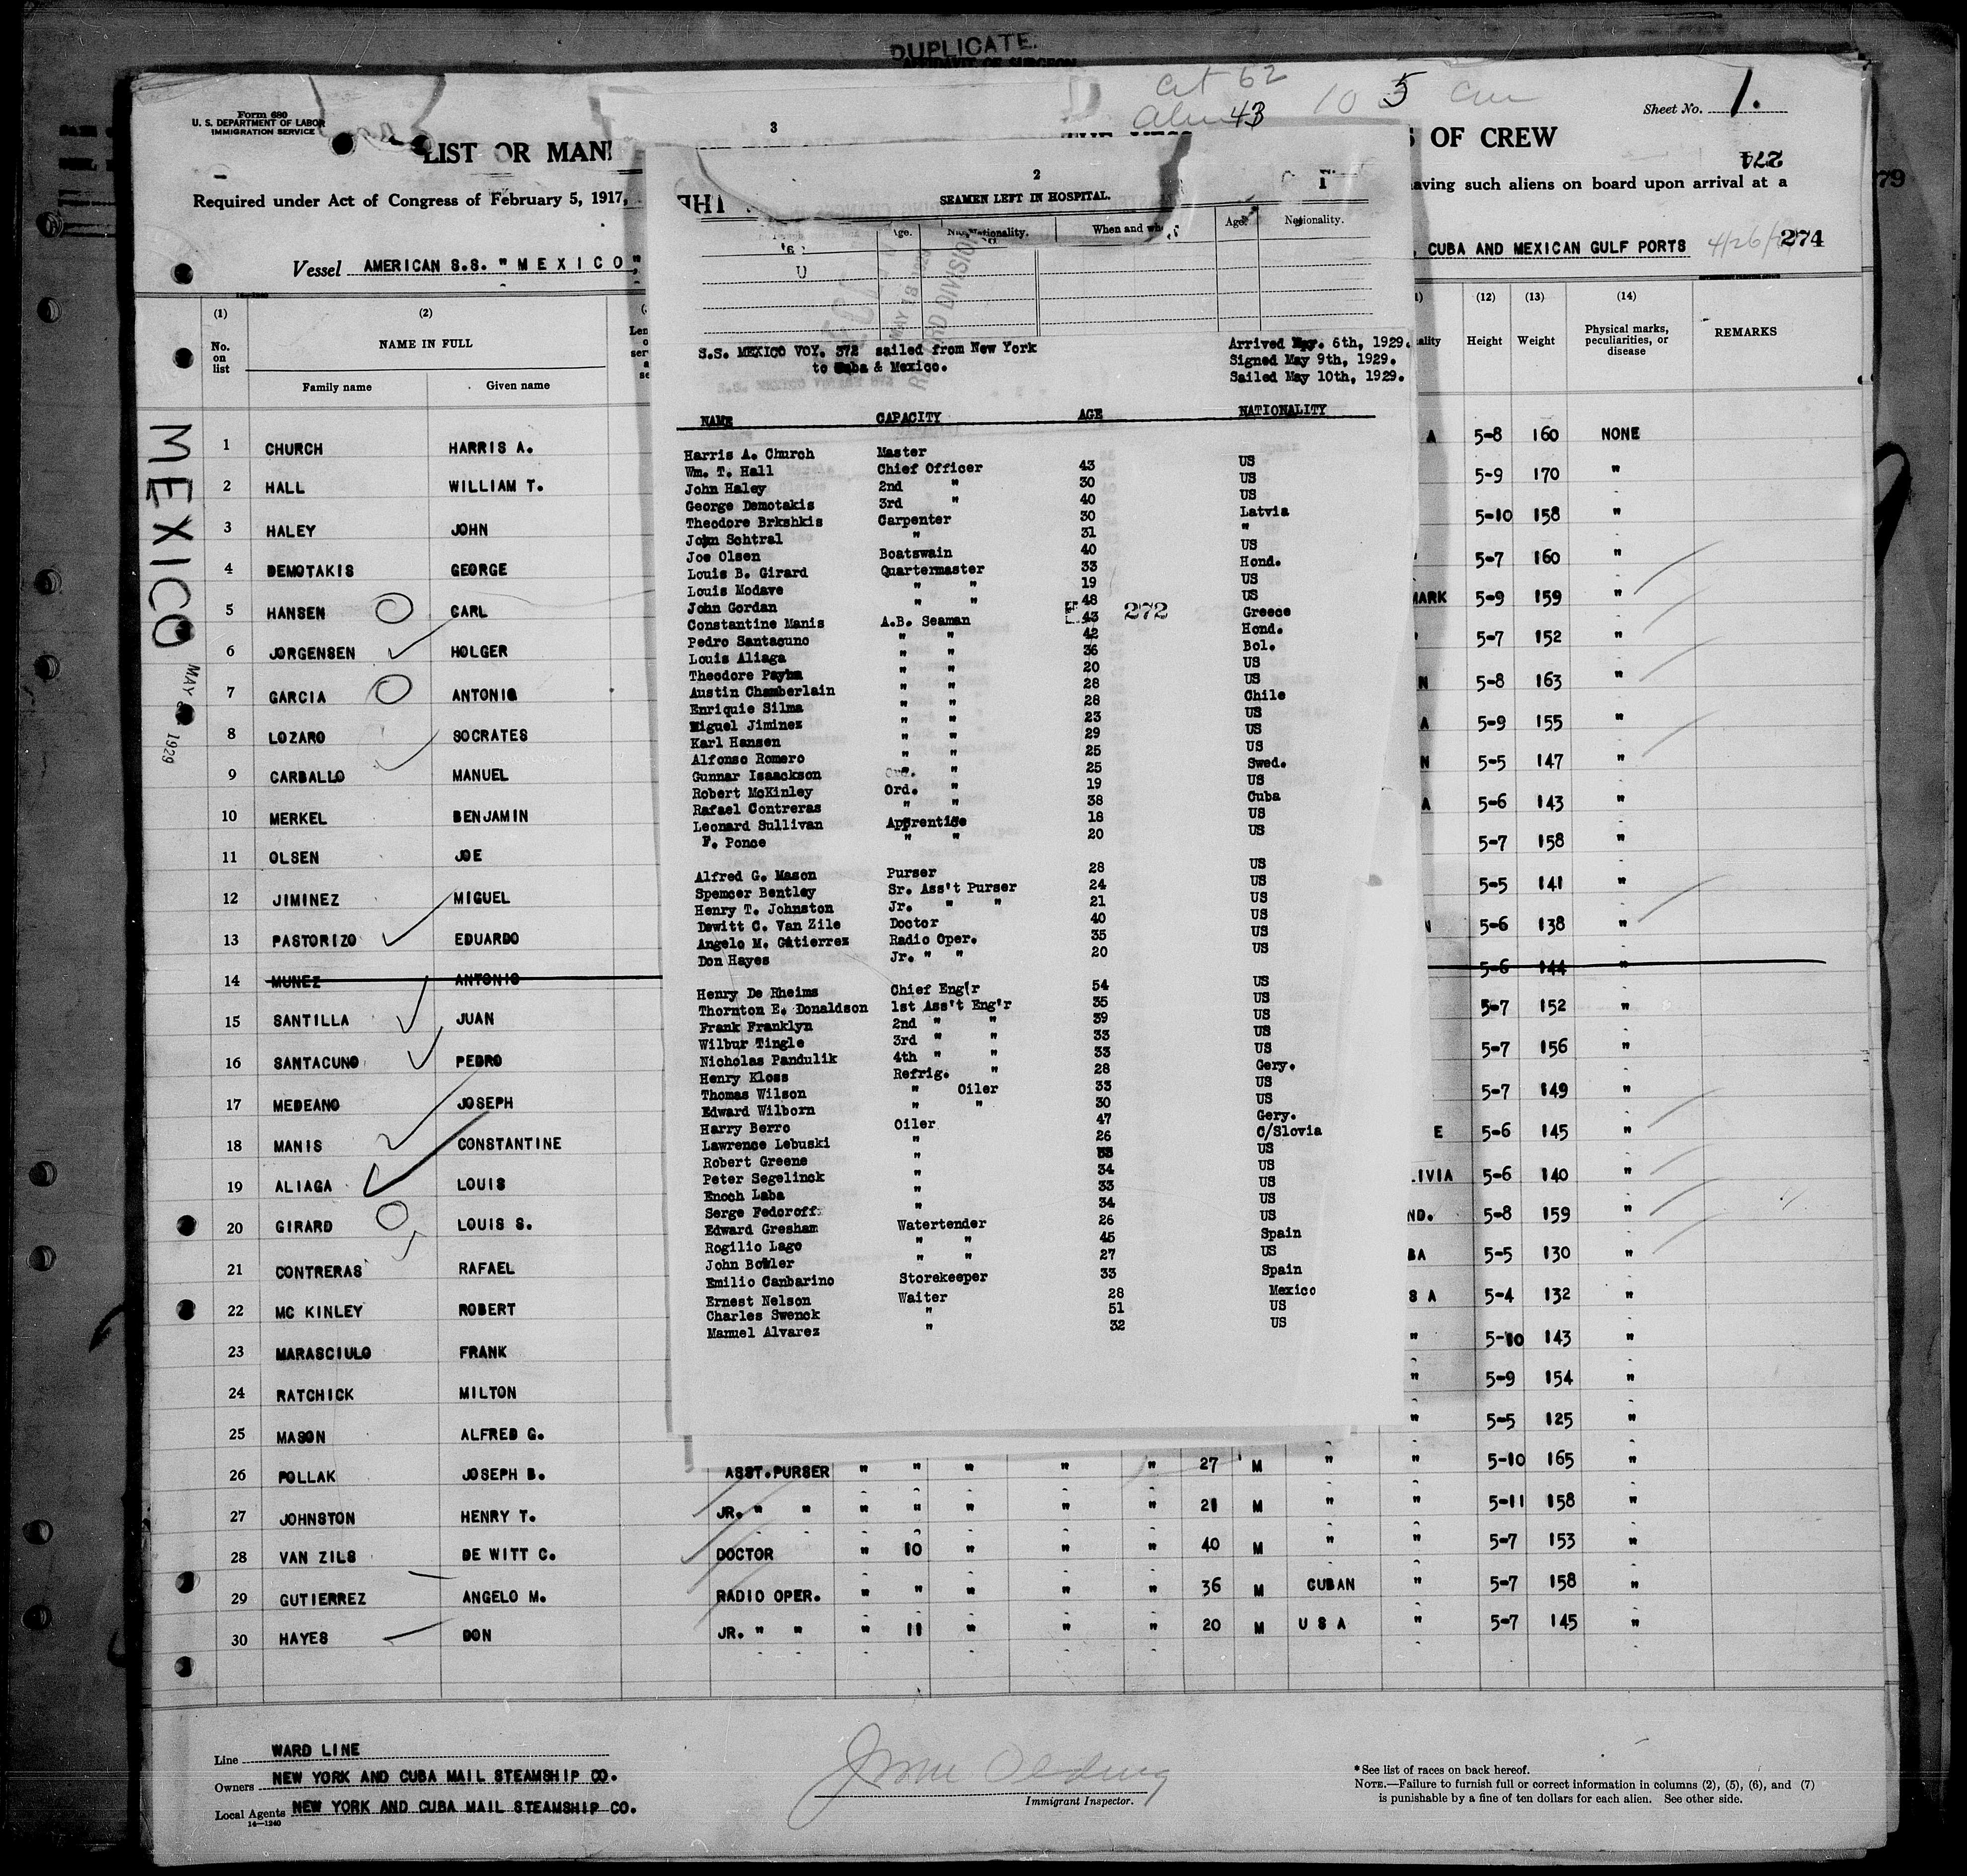 DUPLICATE.
Form 680
U. S. DEPARTMENT OF LABOR
IMMIGRATION SERVICE
Sheet No. 1.
LIST OR
OF CREW
274
Required under Act of Congress of February 5, 1917,
having such aliens on board upon arrival at a
Vessel AMERICAN S.S. "MEXICO,"
CUBA AND MEXICAN GULF PORTS
274
3
2
SEAMEN LEFT IN HOSPITAL.
Age. Nationality. When and Age. Nationality.
S.S. MEXICO VOY. 372 sailed from New York
to Cuba & Mexico.
Arrived May. 6th, 1929.
Signed May 9th, 1929.
Sailed May 10th, 1929.
NAME CAPACITY AGE NATIONALITY
Harris A. Church Master
Wm. T. Hall Chief Officer 43 US
John Haley 2nd " 30 US
George Demotakis 3rd " 40 US
Theodore Brkshkis Carpenter 30 Latvia
John Schtral " 31 "
Joe Olsen Boatswain 40 US
Louis B. Girard Quartermaster 33 Hond.
Louis Modave " " 19 US
John Gordan " " 48 US
Constantine Manis A.B. Seaman 43 Greece
272
Pedro Santacuno " " 42 Hond.
Louis Aliaga " " 36 Bol.
Theodore Payha " " 20 US
Austin Chamberlain " " 28 US
Enriquie Silma " " 28 Chile
Miguel Jiminez " " 23 US
Karl Hansen " " 29 US
Alfonso Romero " " 25 US
Gunnar Isaackson Ord. " 25 Swed.
Robert McKinley Ord. " 19 US
Rafael Contreras " " 38 Cuba
Leonard Sullivan Apprentice 18 US
F. Ponce " " 20 US
Alfred G. Mason Purser 28 US
Spencer Bentley Sr. Ass't Purser 24 US
Henry T. Johnston Jr. " " 21 US
Dewitt C. Van Zile Doctor 40 US
Angelo M. Gutierrez Radio Oper. 35 US
Don Hayes Jr. " " 20 US
Henry De Rheims Chief Eng'r 54 US
Thornton E. Donaldson 1st Ass't Eng'r 35 US
Frank Franklyn 2nd " " 39 US
Wilbur Tingle 3rd " " 33 US
Nicholas Pandulik 4th " " 33 US
Henry Kloss Refrig. " 28 Gery.
Thomas Wilson " Oiler 33 US
Edward Wilborn " " 30 US
Harry Berro Oiler 47 Gery.
Lawrence Lebuski " 26 C/Slovia
Robert Greene " US
Peter Segelinck " 34 US
Enoch Laba " 33 US
Serge Fedoroff " 34 US
Edward Gresham Watertender 26 US
Rogilio Lago " " 45 Spain
John Bowler " " 27 US
Emilio Canbarino Storekeeper 33 Spain
Ernest Nelson Waiter 28 Mexico
Charles Swenck " 51 US
Manuel Alvarez " 32 US
(1) (2) (12) (13) (14)
No. on list NAME IN FULL Height Weight Physical marks, peculiarities, or disease REMARKS
Family name Given name
MEXICO
MAY 1929
1 CHURCH HARRIS A. A 5-8 160 NONE
2 HALL WILLIAM T. 5-9 170 "
3 HALEY JOHN 5-10 158 "
4 DEMOTAKIS GEORGE 5-7 160 "
5 HANSEN CARL MARK 5-9 159 "
6 JORGENSEN HOLGER 5-7 152 "
7 GARCIA ANTONIO N 5-8 163 "
8 LOZARO SOCRATES A 5-9 155 "
9 CARBALLO MANUEL N 5-5 147 "
10 MERKEL BENJAMIN A 5-6 143 "
11 OLSEN JOE 5-7 158 "
12 JIMINEZ MIGUEL 5-5 141 "
13 PASTORIZO EDUARDO N 5-6 138 "
14 MUNEZ ANTONIO 5-6 144 "
15 SANTILLA JUAN 5-7 152 "
16 SANTACUNO PEDRO 5-7 156 "
17 MEDEANO JOSEPH 5-7 149 "
18 MANIS CONSTANTINE E 5-6 145 "
19 ALIAGA LOUIS LIVIA 5-6 140 "
20 GIRARD LOUIS S. ND. 5-8 159 "
21 CONTRERAS RAFAEL BA 5-5 130 "
22 MC KINLEY ROBERT S A 5-4 132 "
23 MARASCIULO FRANK " 5-10 143 "
24 RATCHICK MILTON " 5-9 154 "
25 MASON ALFRED G. " 5-5 125 "
26 POLLAK JOSEPH B. ASST.PURSER " " " " " 27 M " " 5-10 165 "
27 JOHNSTON HENRY T. JR. " " " " " " " 21 M " " 5-11 158 "
28 VAN ZILS DE WITT C. DOCTOR " 10 " " " 40 M " " 5-7 153 "
29 GUTIERREZ ANGELO M. RADIO OPER. " " " " " 36 M CUBAN " 5-7 158 "
30 HAYES DON JR. " " " 11 " " " 20 M U S A " 5-7 145 "
Line WARD LINE
Owners NEW YORK AND CUBA MAIL STEAMSHIP CO.
Local Agents NEW YORK AND CUBA MAIL STEAMSHIP CO.
14—1240
Immigrant Inspector.
*See list of races on back hereof.
NOTE.—Failure to furnish full or correct information in columns (2), (5), (6), and (7)
is punishable by a fine of ten dollars for each alien. See other side.